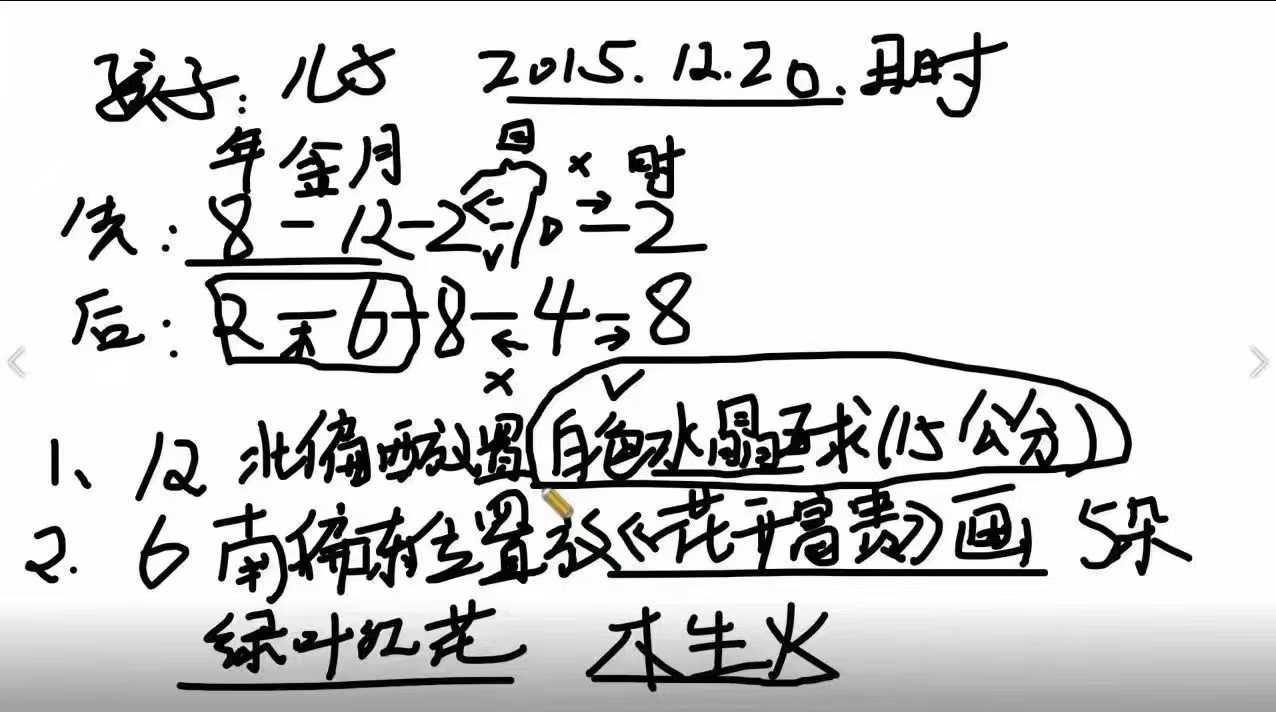 孩子:儿子 2015.12.20.丑时
年金月 日 × 时
先:8-12-2-10-2
后:2-6-8-4-8
木 ← →
× ✓
1、12 北偏西放置白色水晶球(15公分)
2. 6 南偏东位置放《花开富贵》画 5朵
绿叶红花 木生火